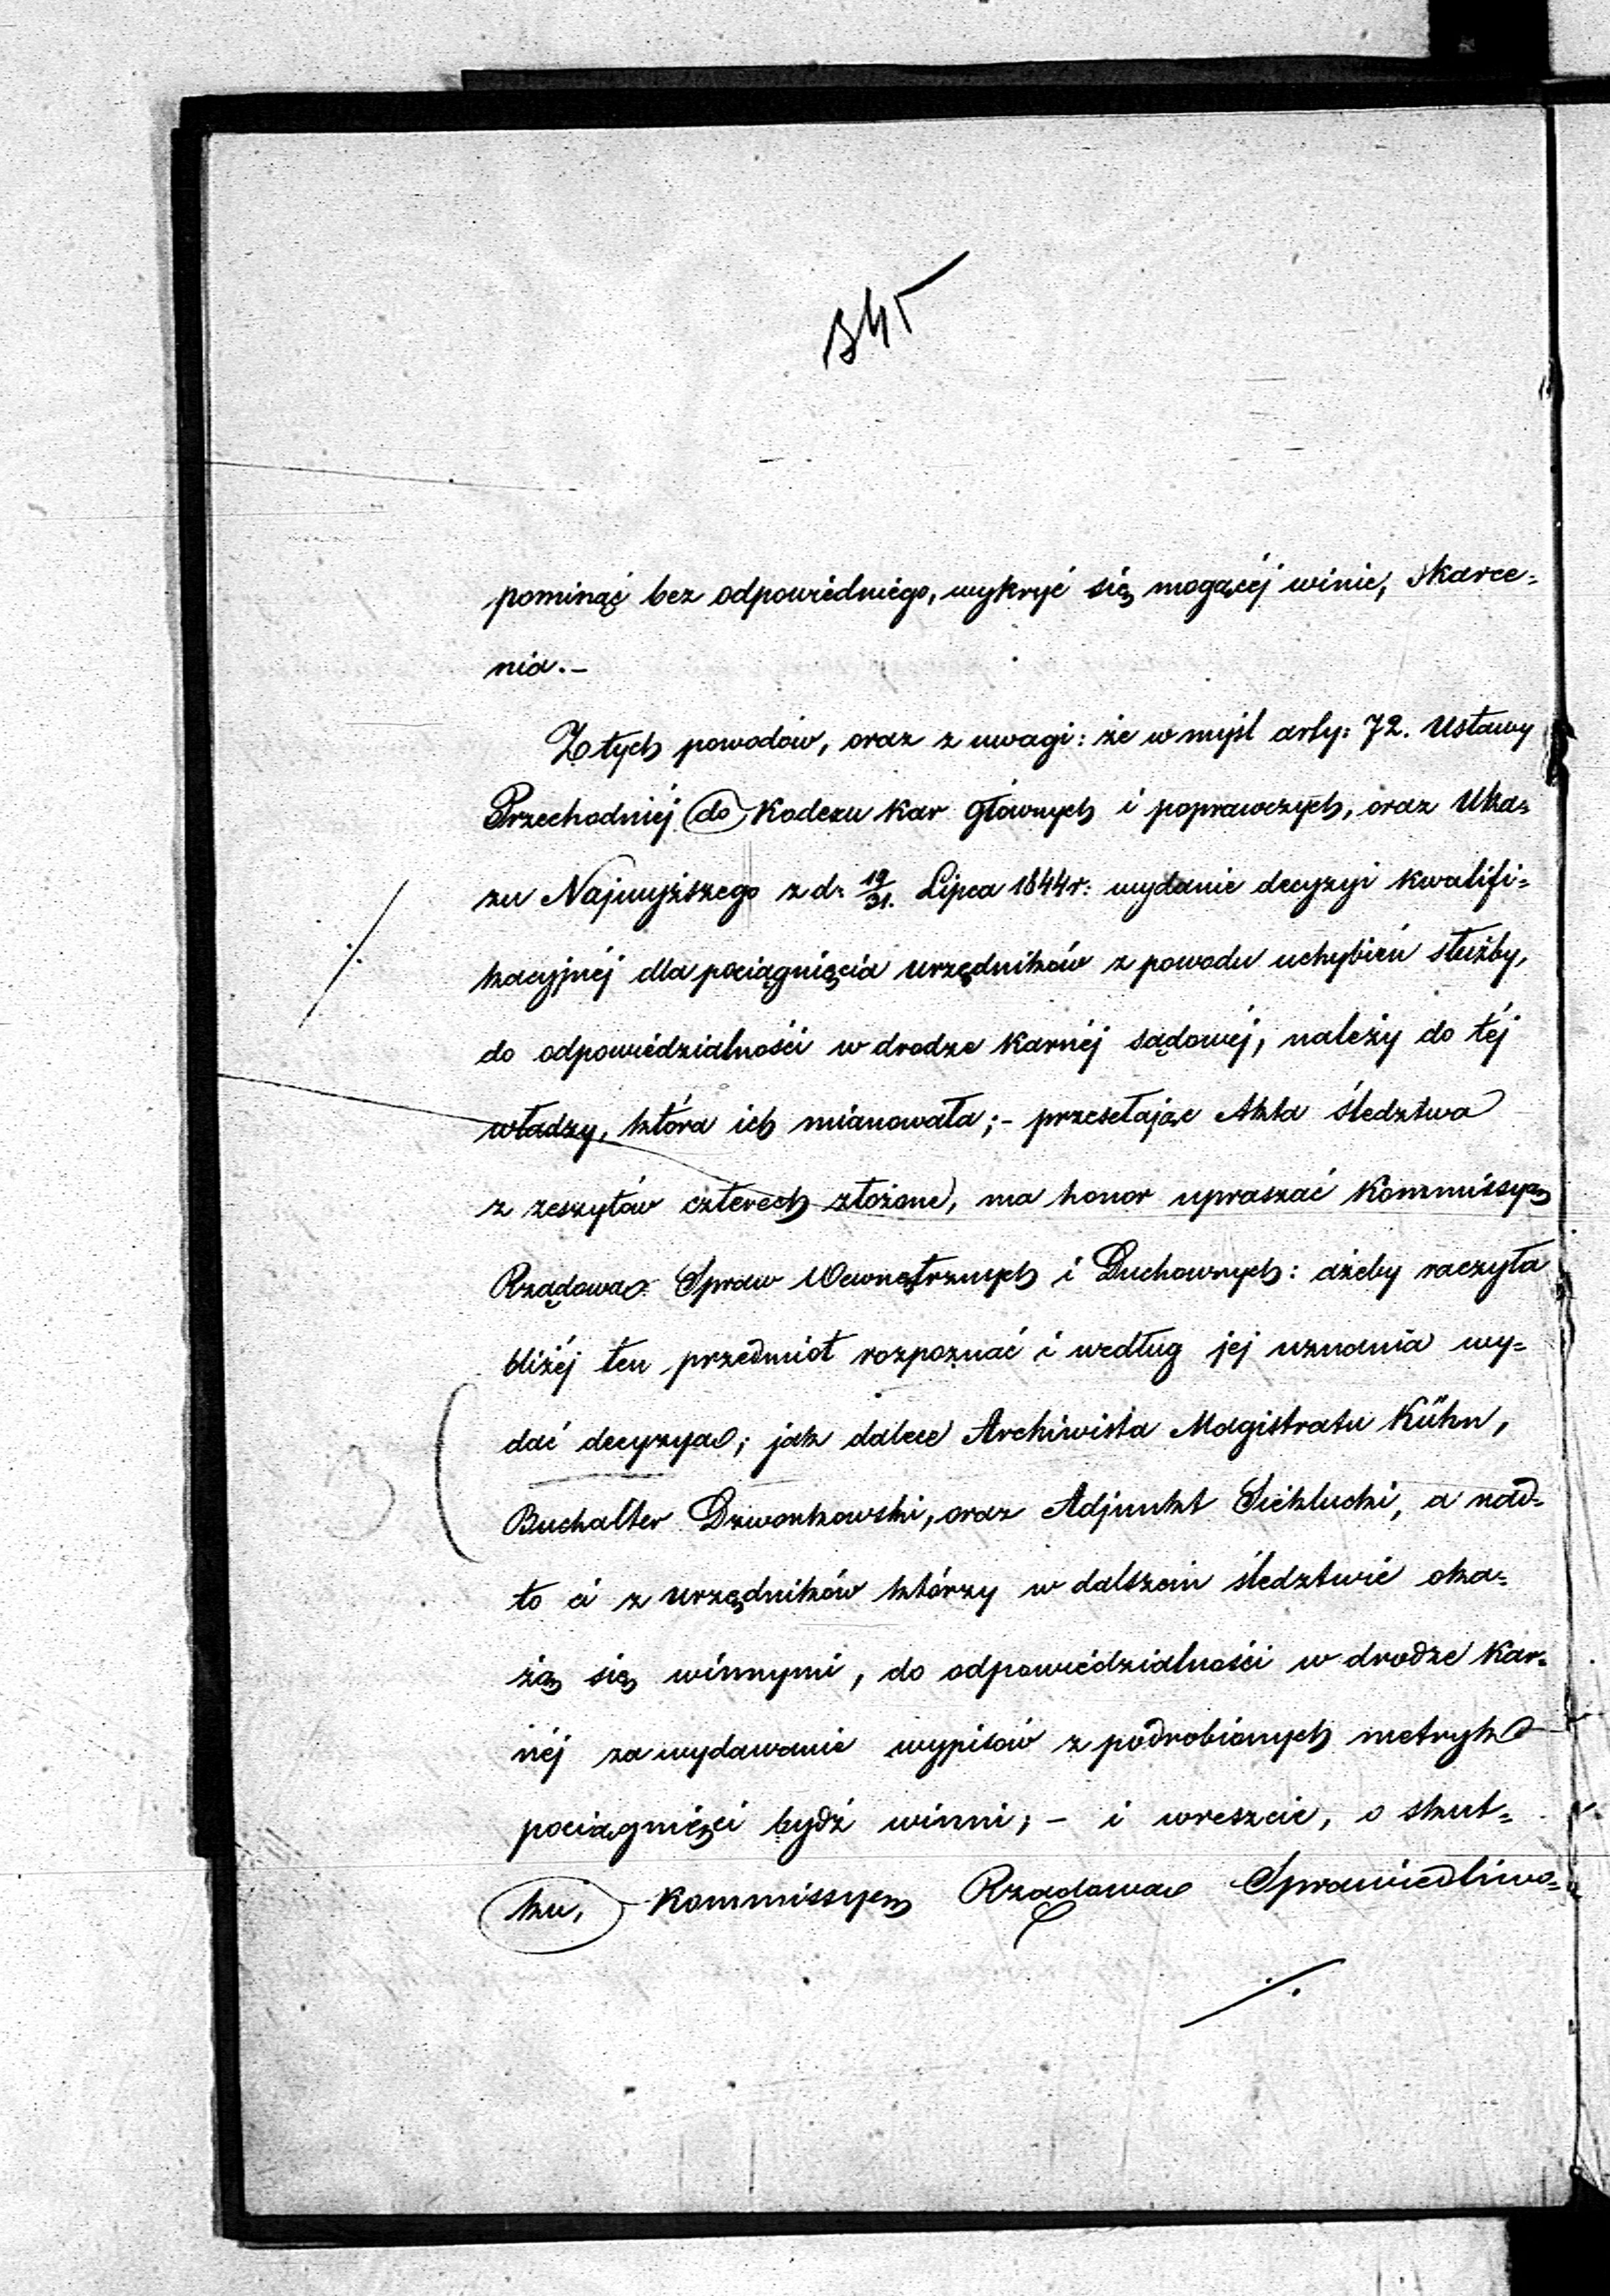 345
pominąć bez odpowiedniego, wykryć się mogącéj winie, skarce=
nia.–
Z tych powodów, oraz z uwagi: że w myśl arty: 72. Ustawy
Przechodniéj do Kodexu Kar Głównych i poprawczych, oraz Uka=
zu Najwyższego z d: 19/31. Lipca 1844 r: wydanie decyzyi kwalifi=
kacyjnéj dla pociągnięcia urzędników z powodu uchybień służby,
do odpowiedzialności w drodze karnéj sądowéj, należy do téj
władzy, która ich mianowała; – przesełając Akta śledztwa
z zeszytów czterech złożone, ma honor upraszać Kommissyę
Rządową Spraw Wewnętrznych i Duchownych: ażeby raczyła
bliżéj ten przedmiot rozpoznać i według jej uznania wy=
dać decyzyą; jak dalece Archiwista Magistratu Kühn,
Buchalter Dzwonkowski, oraz Adjunkt Siekłucki, a nad=
to ci z urzędników którzy w dalszém śledztwie oka=
żą się winnymi, do odpowiedzialności w drodze kar=
néj za wydawanie wypisów z podrobionych metryk
pociągnięci bydź winni; – i wreszcie, o skut=
ku, Kommissyę Rządową Sprawiedliwo=